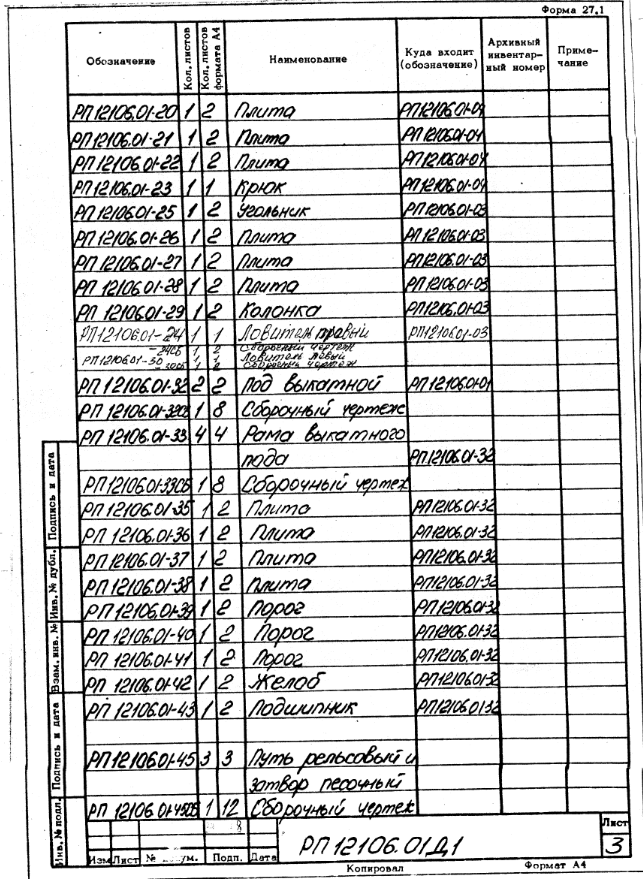 Форма 27.1
Обозначение Кол. листов Кол. листов формата А4 Наименование Куда входит (обозначение) Архивный инвентар-ный номер Приме-чание
РП12106.01-20 1 2 Плита РП12106.01-04
РП12106.01-21 1 2 Плита РП12106.01-04
РП12106.01-22 1 2 Плита РП12106.01-04
РП12106.01-23 1 1 Крюк РП12106.01-04
РП12106.01-25 1 2 Угольник РП12106.01-03
РП12106.01-26 1 2 Плита РП12106.01-03
РП12106.01-27 1 2 Плита РП12106.01-03
РП12106.01-28 1 2 Плита РП12106.01-03
РП12106.01-29 1 2 Колонка РП12106.01-03
РП12106.01-24 1 1 Ловитель правый РП12106.01-03
-24СБ 1 2 Сборочный чертеж
РП12106.01-30 1 1 Ловитель левый
-30СБ 1 2 Сборочный чертеж
РП12106.01-32 2 2 Под выкатной РП12106.01-01
РП12106.01-32СБ 1 8 Сборочный чертеж
РП12106.01-33 4 4 Рама выкатного
пода РП12106.01-32
РП12106.01-33СБ 1 8 Сборочный чертеж
РП12106.01-35 1 2 Плита РП12106.01-32
РП12106.01-36 1 2 Плита РП12106.01-32
РП12106.01-37 1 2 Плита РП12106.01-32
РП12106.01-38 1 2 Плита РП12106.01-32
РП12106.01-39 1 2 Порог РП12106.01-32
РП12106.01-40 1 2 Порог РП12106.01-32
РП12106.01-41 1 2 Порог РП12106.01-32
РП12106.01-42 1 2 Желоб РП12106.01-32
РП12106.01-43 1 2 Подшипник РП12106.01-32
РП12106.01-45 3 3 Путь рельсовый и
затвор песочный
РП12106.01-45СБ 1 12 Сборочный чертеж
Подпись и дата
Инв. № дубл.
Взам. инв. №
Подпись и дата
Инв. № подл.
Изм Лист № Подп. Дата
РП12106.01Д1
Лист
3
Копировал
Формат А4